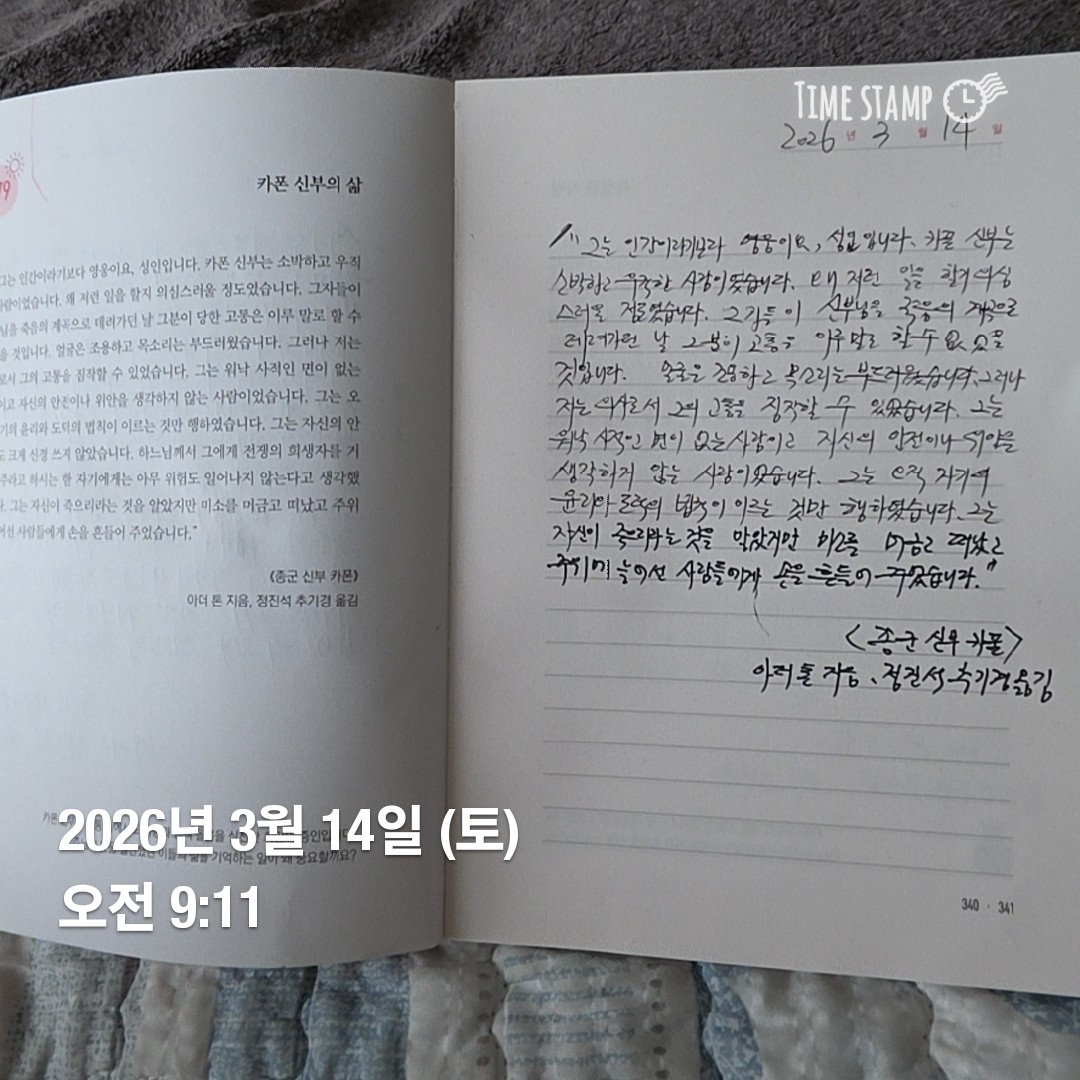 TIME STAMP
2026년 3월 14일
79
카폰 신부의 삶
그는 인간이라기보다 영웅이요, 성인입니다. 카폰 신부는 소박하고 우직
사람이었습니다. 왜 저런 일을 할지 의심스러울 정도였습니다. 그자들이
님을 죽음의 계곡으로 데려가던 날 그분이 당한 고통은 이루 말로 할 수
을 것입니다. 얼굴은 조용하고 목소리는 부드러웠습니다. 그러나 저는
로서 그의 고통을 짐작할 수 있었습니다. 그는 워낙 사적인 면이 없는
이고 자신의 안전이나 위안을 생각하지 않는 사람이었습니다. 그는 오
기의 윤리와 도덕의 법칙이 이르는 것만 행하였습니다. 그는 자신의 안
도 크게 신경 쓰지 않았습니다. 하느님께서 그에게 전쟁의 희생자를 거
주라고 하시는 한 자기에게는 아무 위험도 일어나지 않는다고 생각했
다. 그는 자신이 죽으리라는 것을 알았지만 미소를 머금고 떠났고 주위
어선 사람들에게 손을 흔들어 주었습니다."
《종군 신부 카폰》
아더 톤 지음, 정진석 추기경 옮김
카폰
증인입니다
이들의 삶을 기억하는 일이 왜 중요할까요?
"그는 인간이라기보다 영웅이요, 성인입니다. 카폰 신부는
소박하고 우직한 사람이었습니다. 왜 저런 일을 할지 의심
스러울 정도였습니다. 그자들이 신부님을 죽음의 계곡으로
데려가던 날 그분이 고통은 이루 말로 할 수 없었을
것입니다. 얼굴은 조용하고 목소리는 부드러웠습니다. 그러나
저는 의사로서 그의 고통을 짐작할 수 있었습니다. 그는
워낙 사적인 면이 없는 사람이고 자신의 안전이나 위안을
생각하지 않는 사람이었습니다. 그는 오직 자기의
윤리와 도덕의 법칙이 이르는 것만 행하였습니다. 그는
자신이 죽으리라는 것을 알았지만 미소를 머금고 떠났고
주위에 늘어선 사람들에게 손을 흔들어 주었습니다."
<종군 신부 카폰>
아더 톤 지음, 정진석 추기경 옮김
340 · 341
2026년 3월 14일 (토)
오전 9:11